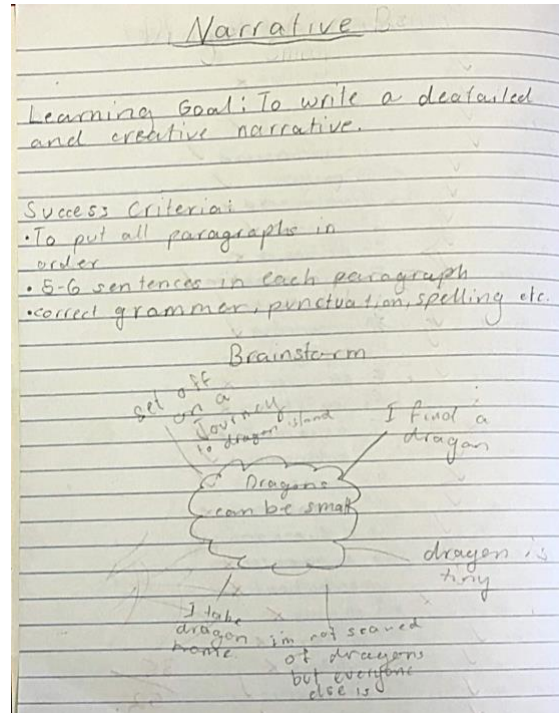 Narrative
Learning Goal: To write a deatailed
and creative narrative.
Success Criteria:
•To put all paragraphs in
order
• 5-6 sentences in each paragraph
•correct grammer, punctuation, spelling etc.
Brainstorm
set off
on a
Journey
to dragon island
I find a
dragon
Dragons
can be small
dragon is
tiny
I take
dragon
home
im not scared
of dragons
but everyone
else is